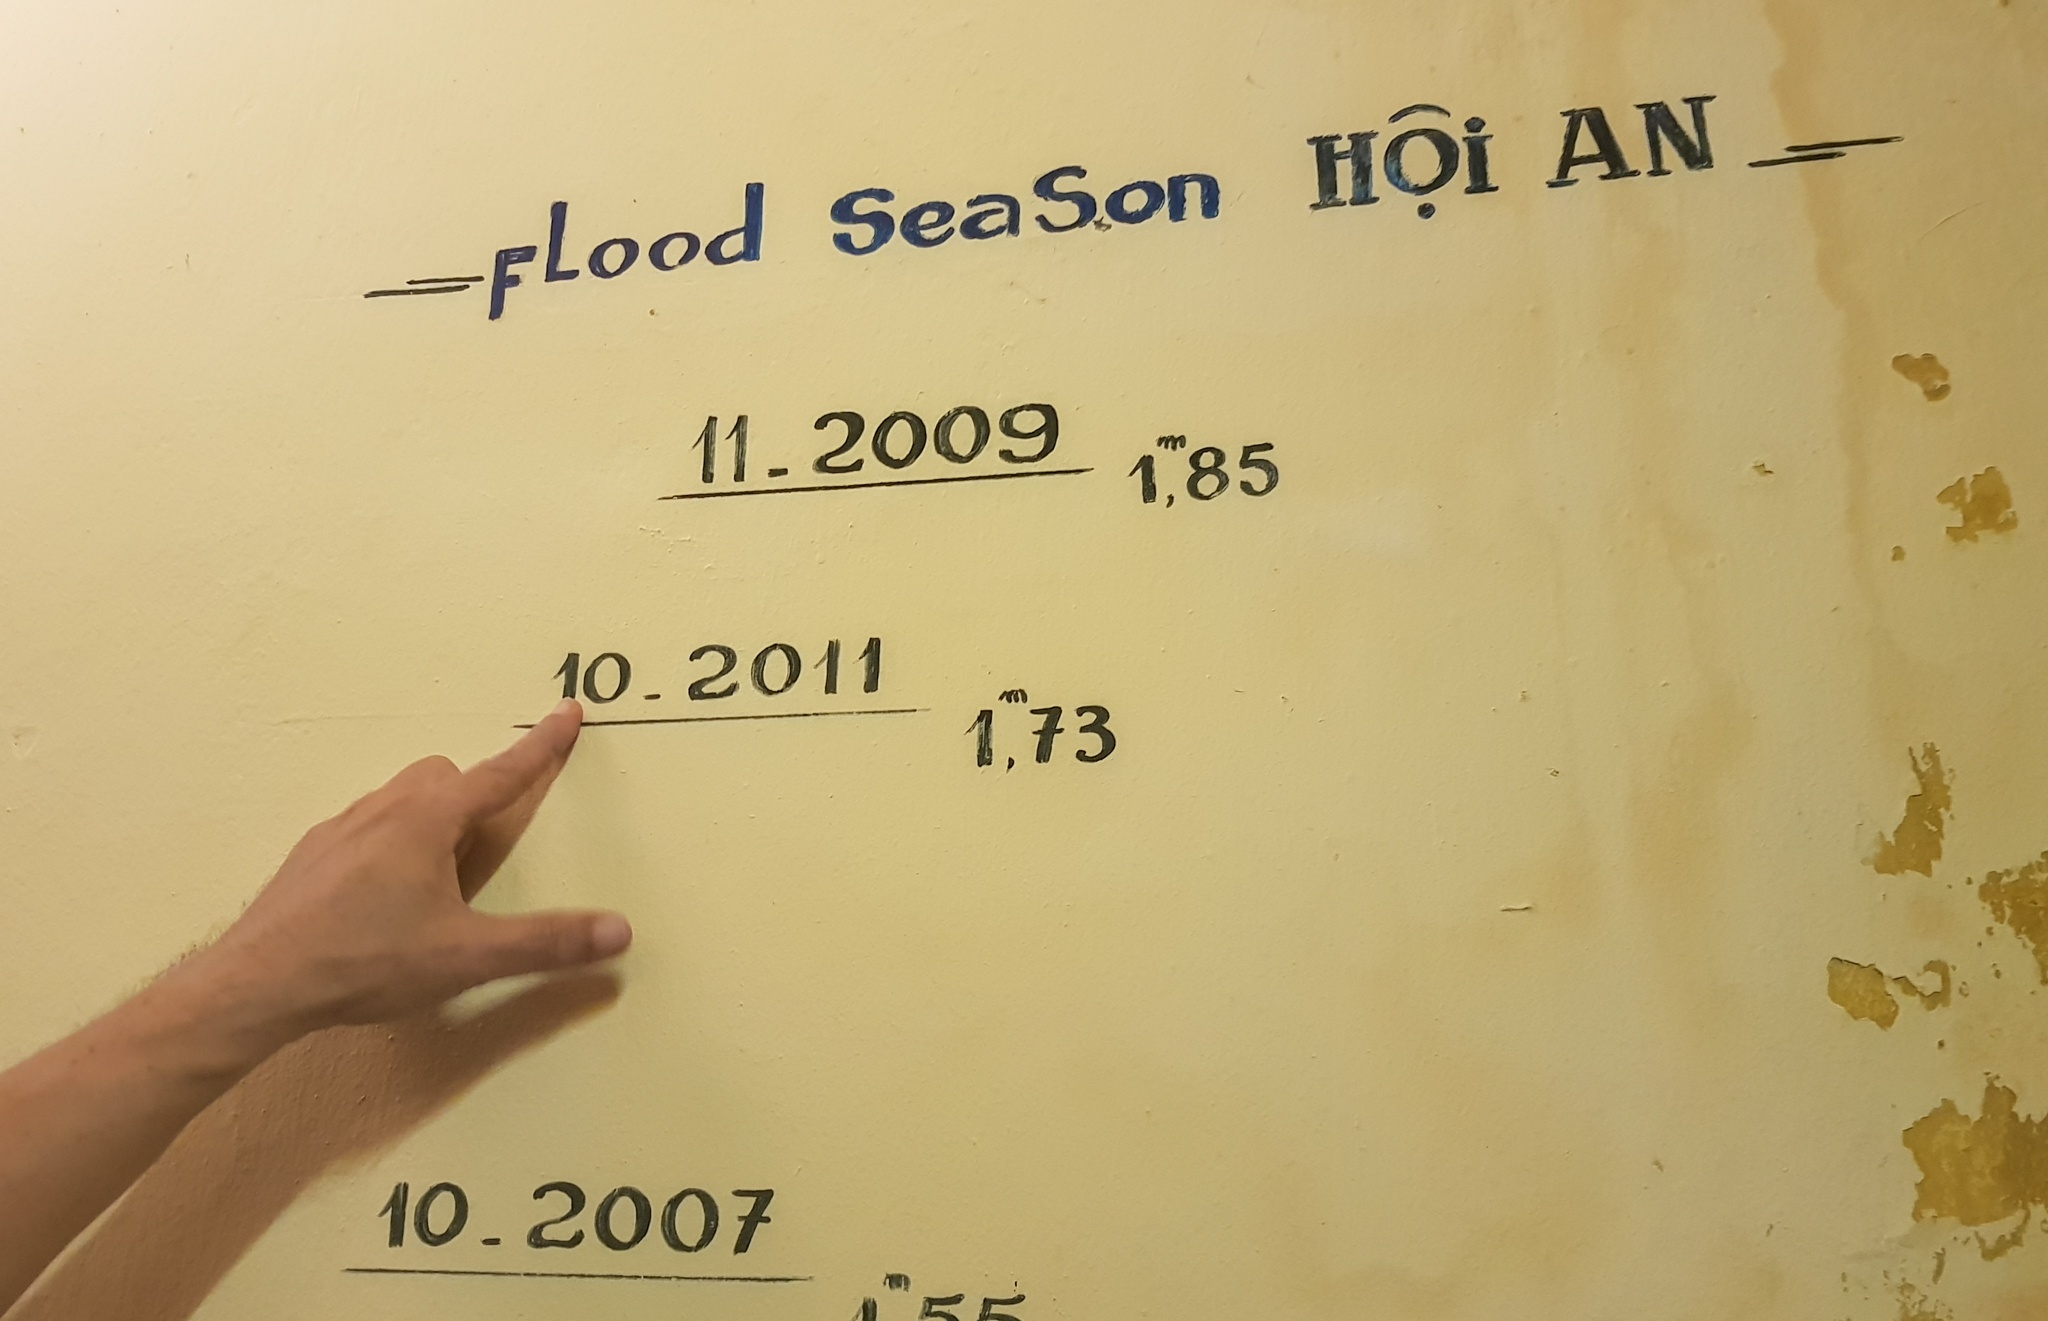 FLood SeaSon HỘi AN
11-2009
1,m85
10-2011
1,m73
10-2007
1,m55